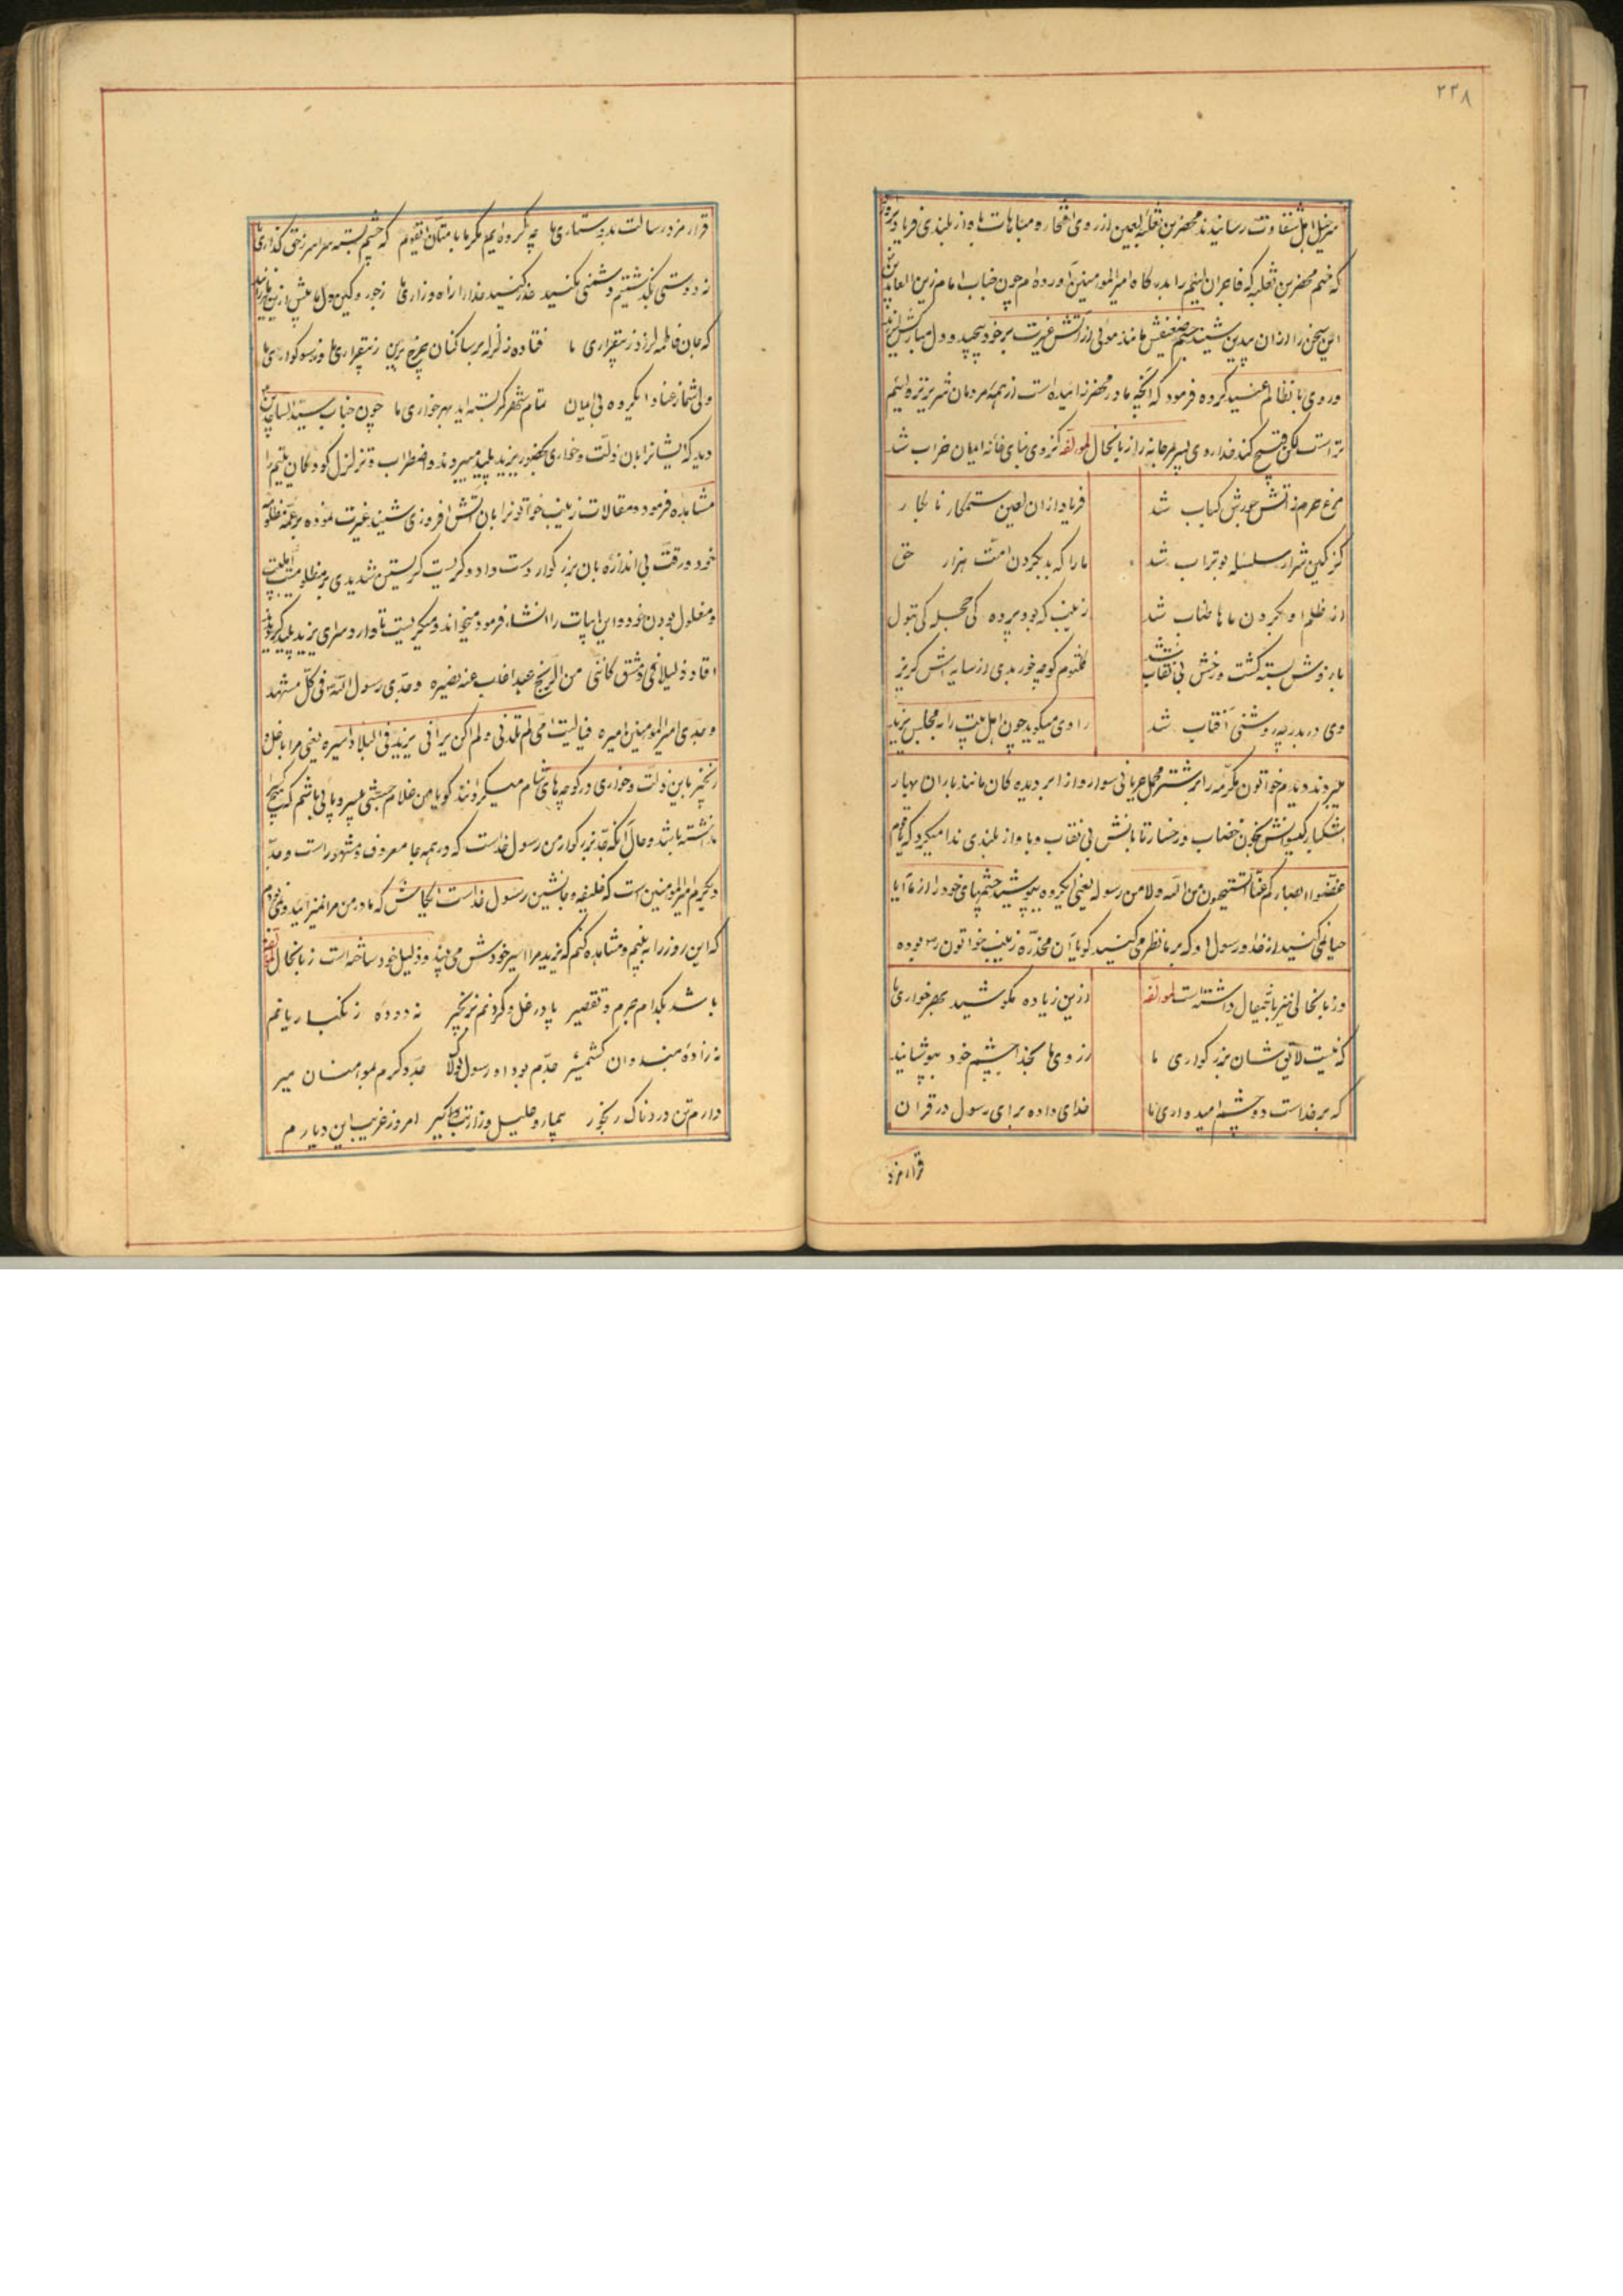 ۲۳۸
سرخیل اهل شقاوت رسانیدند محضر بن ثعلبه لعین از روی افتخار و مباهات باواز بلندی فریاد برآورد
که منم محضر بن ثعلبه که فاجران لئیم را بدرگاه امیرالمومنین آورده ام چون جناب امام زین العابدین
این سخن را از ان بیدین شنید جسم ضعیفش مانند موئی از آتش غیرت برخود پیچید و دل مبارکش
و روی بانظالم عنید کرده فرمود که آنچه مادر محضر زائیده است از همه مردمان شریرتر و لئیم
تر است لکن قبیح کند خدا روی پسر مرجانه را زبانحال لمولفه کز وی بنای خانه ایمان خراب شد
فریاد از ان لعین ستمکار نابکار
مرغ حرم ز آتش جورش کباب شد
ما را که بد بگردن امت هزار حق
کز کین شرار سلسله بوتراب شد
زینب که بود پرده کی حجله کی بتول
از ظلم او بگردن ماها طناب شد
کلثوم کوچه خور بدی از سایه اش گریز
بازوش بسته گشت و رخش بی نقاب شد
راوی میگوید چون اهل بیت را به مجلس یزید
وی در بدر چه روشنی آفتاب شد
میبردند دیدم خواتون مکرمه را بر شتر محمل عریانی سوار و از ابر دیده کان مانند باران بهار
اشکبار گیسوانش بخون خضاب و رخسار تابانش بی نقاب و باواز بلندی ندا میکرد که یاقوم
غضوا ابصارکم عنا اما تستحیون من الله ولا من رسوله یعنی ایکروه بپوشید چشمهای خود را از ما آیا
حیا نمی کنید از خدا و رسول او که بر ما نظر می کنید گویا آن مخدره زینب خواتون بوده
و زبانحالی نیز باینمقال داشته است لمولفه
ازین زیاده مکوشید بهر خواری ما
که نیست لایق شان بزرگواری ما
ز روی ما بخدا چشم خود بپوشانید
که بر خداست دو چشم امیدواری ما
خدای داده برای رسول در قران
قرار مزد
قرار مزد رسالت بدوستداری ما چه کرده ایم مگر ما بامتان ایقوم که چشم بسته سراسر ز حق گذاری ما
ز دوستی بگذشتیم دشمنی نکنید حذر کنید خدا را ز آه و زاری ما ز جور و کین دل ما بیش ازین
که جان فاطمه لرزد ز بیقراری ما فتاده زلزله بر ساکنان چرخ برین ز بیقراری ما و ز سوگواری ما
ولی شما ز عناد ایکروه بی ایمان تمام شهر کمر بسته اید بهر خواری ما چون جناب سید الساجدین
دید که ایشانرا بان ذلت و خواری بحضور یزید پلید میبردند و اضطراب و تزلزل کودکان یتیم را
مشاهده فرمود و مقالات زینب خواتونرا بان آتش افروزی شنید غیرت نموده بر عمه مظلومه
خود و رقت بی اندازه بان بزرگوار دست داد و گریست گریستن شدیدی بر مظلومیت اهلبیت
و مغلول بودن خود و این ابیات را انشاء فرمود میخواند و میگریست تا وارد سرای یزید پلید گردیدند
اقاد ذلیلا فی دمشق کاننی من الزنج عبد اغاب عنه نصیره وجدی رسول الله فی کل مشهد
وجدی امیرالمومنین امیره فیالیت امی لم تلدنی ولم اکن یرانی یزید فی البلاد اسیره یعنی مرا با غل و
زنجیر باین ذلت و خواری در کوچه های شام میگردانند گویا من غلام حبشی بی سر و پائی باشم که هیچ
نداشته باشد و حال آنکه جد بزرگوار من رسول خداست که در همه جا معروف و مشهور است و جد
دیگرم امیرالمومنین است که خلیفه و جانشین رسول خداست ایکاش که مادر من مرا نمیزائید و نمی بودم
که این روز را به بینم و مشاهده کنم که یزید مرا اسیر خودش می بیند و ذلیل خود ساخته است زبانحال لمولفه
باشد بکدام جرم و تقصیر پا در غل و گردنم بزنجیر نه دوده زنگبار یانم
نه زاده هند و ان کشمیر جدم بود او رسول جد و کرم لمومنان میر
دارم تن دردناک رنجور بیمار و علیل و زار امروز غریب این دیارم